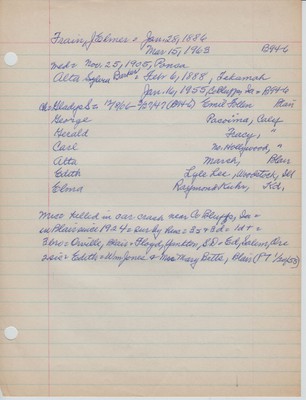 Frain, J Elmer = Jan. 28, 1886
Mar 15, 1963 B94-6
med = Nov. 25, 1905, Ponca
Alta Sylvia Barker Feb 6, 1888, Tekamah
Jan. 16, 1955, Co Bluffs, Ia = B94-6
ch = Gladys S = (B94-6) Emil Follen Blair
George Pacoima, Calif
Gerald Tracy, "
Carl No. Hollywood, "
Alta Marsh, Blair
Edith Lyle Lee, Woodstock, Ill
Elma Raymond Kuhr, Kct,
Mrs killed in car crash near Co Bluffs, Ia =
in Blair since 1924 = sur by hus = 3s + 3d = 1d +
3 bro = Orville, Blair = Floyd, Hamilton, S.D. = Ed, Salem, Ore
2 sis = Edith = Wm Jones & Mrs Mary Betts, Blair (PT 1/20/55)